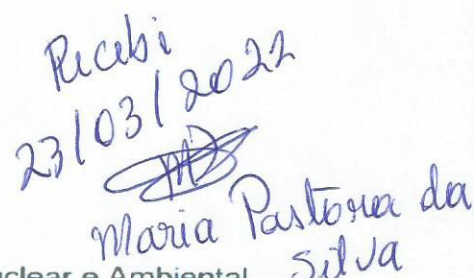 Recebi
23/03/2022
Maria Pastora da
Silva
clear e Ambiental